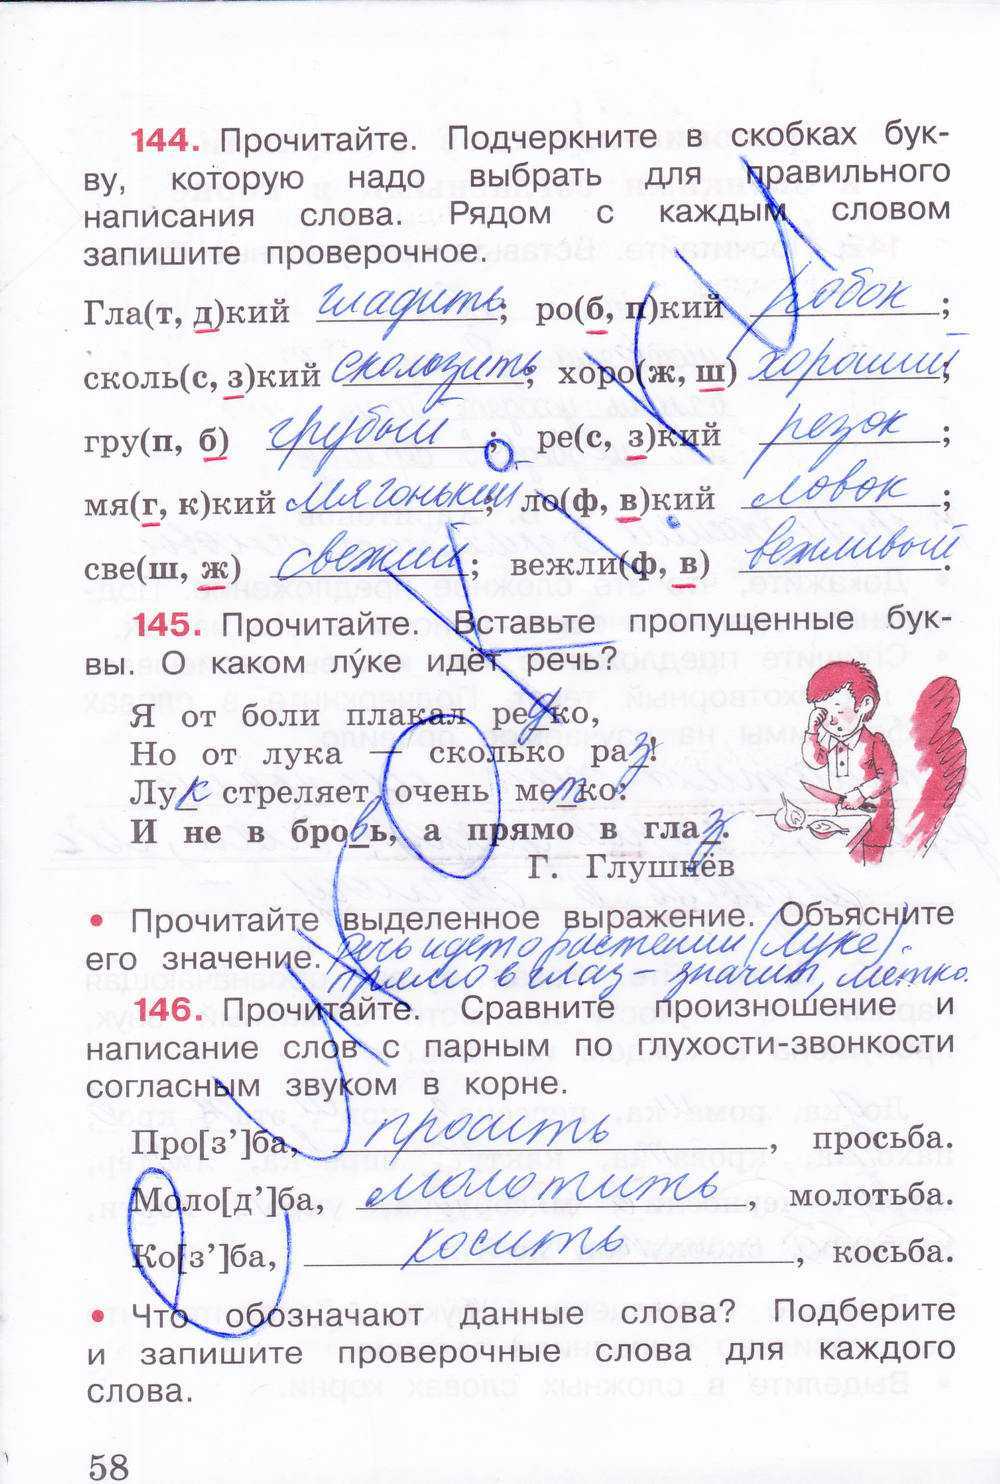 144. Прочитайте. Подчеркните в скобках бук-
ву, которую надо выбрать для правильного
написания слова. Рядом с каждым словом
запишите проверочное.
Гла(т, д)кий гладить; ро(б, п)кий робок;
сколь(с, з)кий скользить; хоро(ж, ш) хороший;
гру(п, б) грубый; ре(с, з)кий резок;
мя(г, к)кий мягонький; ло(ф, в)кий ловок;
све(ш, ж) свежий; вежли(ф, в) вежливый.
145. Прочитайте. Вставьте пропущенные бук-
вы. О каком лу́ке идёт речь?
Я от боли плакал редко,
Но от лука — сколько раз!
Лук стреляет очень метко:
И не в бровь, а прямо в глаз.
Г. Глушнёв
• Прочитайте выделенное выражение. Объясните
его значение. речь идет о растении (Луке).
прямо в глаз - значит, метко.
146. Прочитайте. Сравните произношение и
написание слов с парным по глухости-звонкости
согласным звуком в корне.
Про[з’]ба, просить, просьба.
Моло[д’]ба, молотить, молотьба.
Ко[з’]ба, косить, косьба.
• Что обозначают данные слова? Подберите
и запишите проверочные слова для каждого
слова.
58